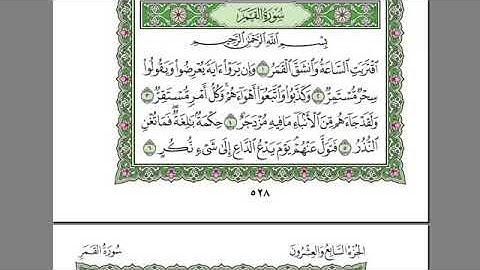 سُورَةُ القَمَرِ
بِسْمِ اللَّهِ الرَّحْمَٰنِ الرَّحِيمِ
اقْتَرَبَتِ السَّاعَةُ وَانشَقَّ الْقَمَرُ ١ وَإِن يَرَوْا ءَايَةً يُعْرِضُوا وَيَقُولُوا
سِحْرٌ مُّسْتَمِرٌّ ٢ وَكَذَّبُوا وَاتَّبَعُوا أَهْوَاءَهُمْ وَكُلُّ أَمْرٍ مُّسْتَقِرٌّ ٣
وَلَقَدْ جَاءَهُم مِّنَ الْأَنبَاءِ مَا فِيهِ مُزْدَجَرٌ ٤ حِكْمَةٌ بَالِغَةٌ فَمَا تُغْنِ
النُّذُرُ ٥ فَتَوَلَّ عَنْهُمْ يَوْمَ يَدْعُ الدَّاعِ إِلَىٰ شَيْءٍ نُّكُرٍ ٦
٥٢٨
الجزء السابع والعشرون
سُورَةُ القَمَرِ